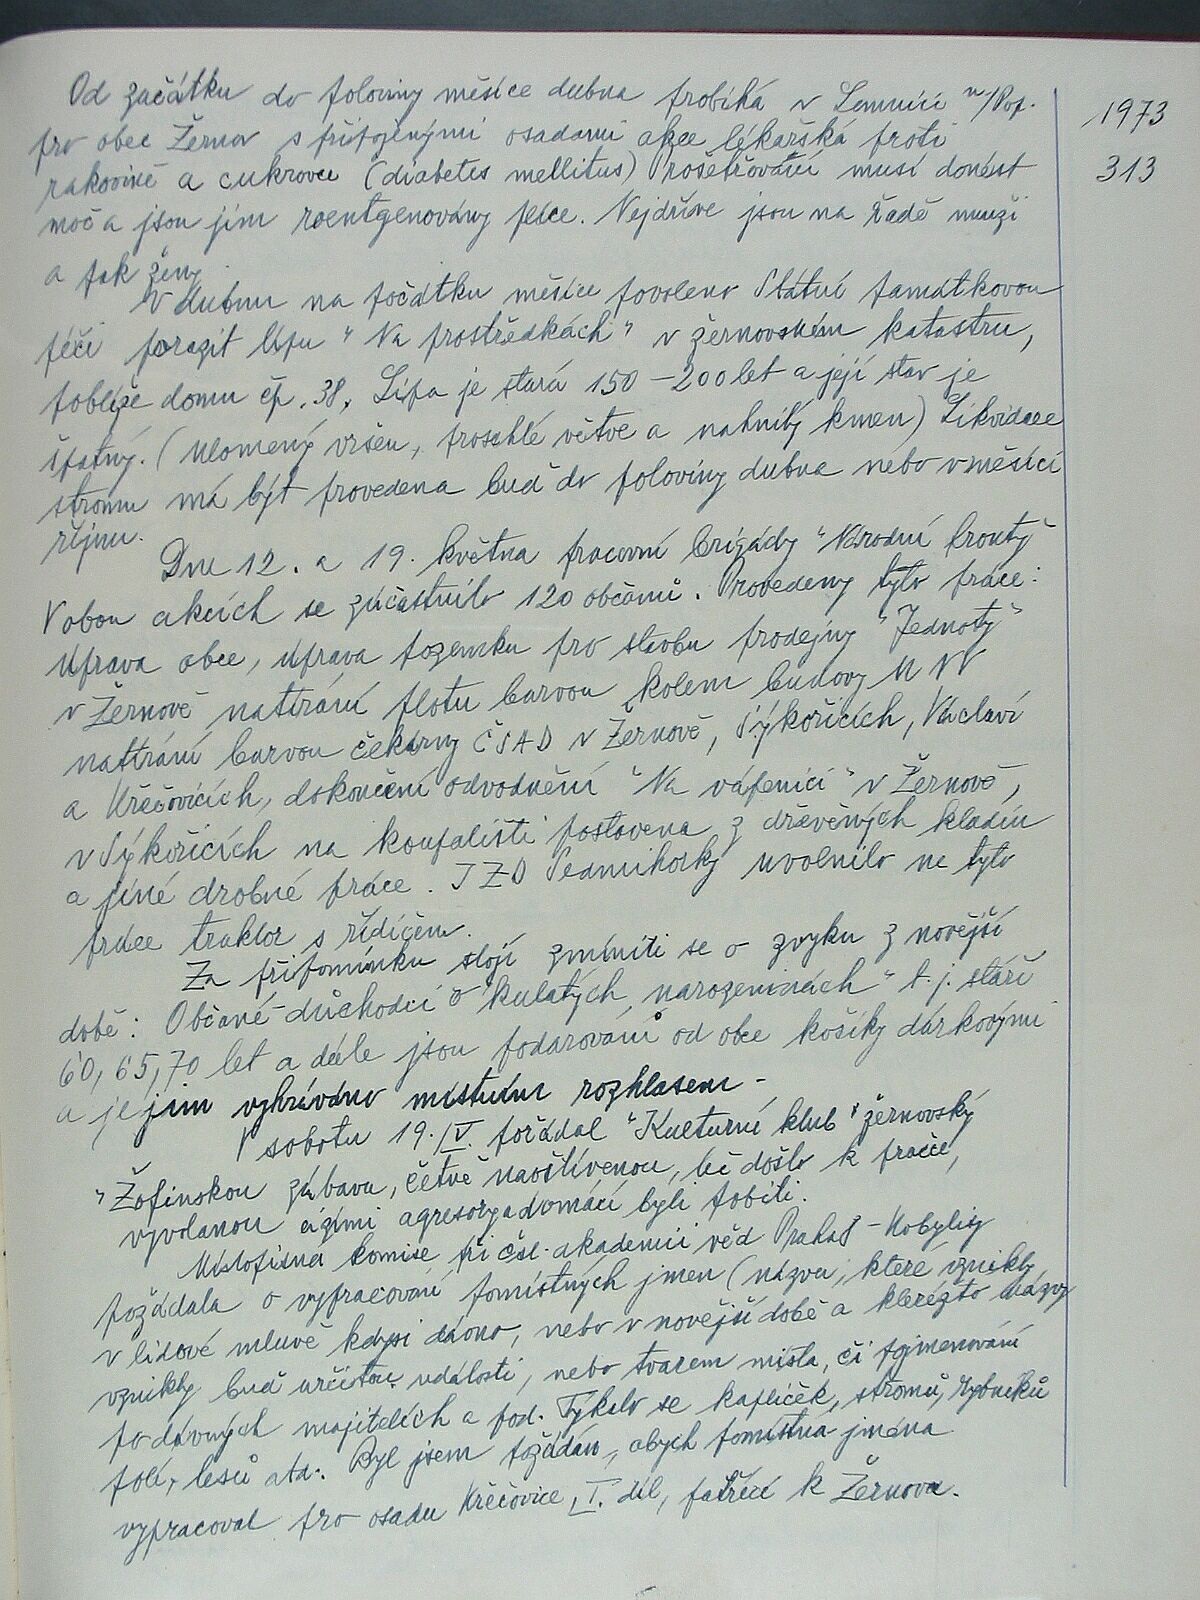 Od začátku do poloviny měsíce dubna probíhá v Lomnici n/Pop.
pro obec Žernov s připojenými osadami akce lékařská proti
rakovině a cukrovce (diabetes mellitus) Prošetřováni musí donést
moč a jsou jim roentgenovány plíce. Nejdříve jsou na řadě muži
a pak ženy.
V dubnu na počátku měsíce povoleno Státní památkovou
péčí porazit lípu "Na prostředkách" v žernovském katastru,
poblíže domu čp. 38. Lípa je stará 150-200 let a její stav je
špatný. (Ulomený vršek, proschlé větve a nahnilý kmen) Likvidace
stromu má být provedena buď do poloviny dubna nebo v měsíci
říjnu.
Dne 12. a 19. května pracovní brigády "Národní fronty"
V obou akcích se zúčastnilo 120 občanů. Provedeny tyto práce:
Úprava obce, úprava pozemku pro stavbu prodejny "Jednoty"
v Žernově natírání plotu barvou kolem budovy MNV
natírání barvou čekárny ČSAD v Žernově, Sýkořicích, Václaví
a Křečovicích, dokončení odvodnění "Na vápenici" v Žernově,
v Sýkořicích na koupališti postavena z dřevěných kladin
a jiné drobné práce. JZD Sedmihorky uvolnilo na tyto
práce traktor s řidičem.
Za připomínku stojí zmíniti se o zvyku z novější
době: Občané-důchodci o "kulatých narozeninách" t.j. stáří
60, 65, 70 let a dále jsou podarováni od obce košíky dárkovými
a je jim vyhráváno místním rozhlasem -
V sobotu 19./V. pořádal "Kulturní klub" žernovský
"Žofínskou zábavu, četně naoštívenou, leč došlo k pračce,
vyvolanou cizími agresory a domácí byli pobiti.
Místopisná komise při čsl. akademii věd Praha 8 - Kobylisy
požádala o vypracování pomístných jmen (názvů, které vznikly
v lidové mluvě kdysi dávno, nebo v novější době a kteréžto názvy
vznikly buď určitou událostí, nebo tvarem místa, či pojmenování
po dávných majitelích a pod. Týkalo se kapliček, stromů, rybníků
polí, lesů atd. Byl jsem požádán, abych pomístná jména
vypracoval pro osadu Křečovice, I. díl, patřící k Žernovu.
1973
313